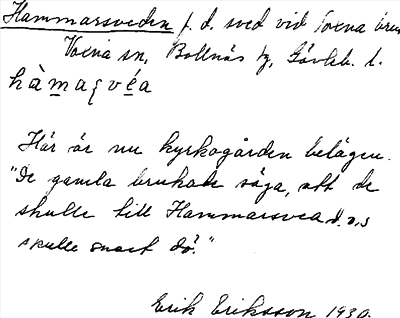 Hammarsveden f. d. sved vid Voxna
Voxna sn, Bollnäs tg, Gävleb. l.
hàmaʂvéa
Här är nu kyrkogården belägen.
"De gamla brukade säga, att de
skulle till Hammarsvea d.v.s
skulle snart dö."
Erik Eriksson 1930.